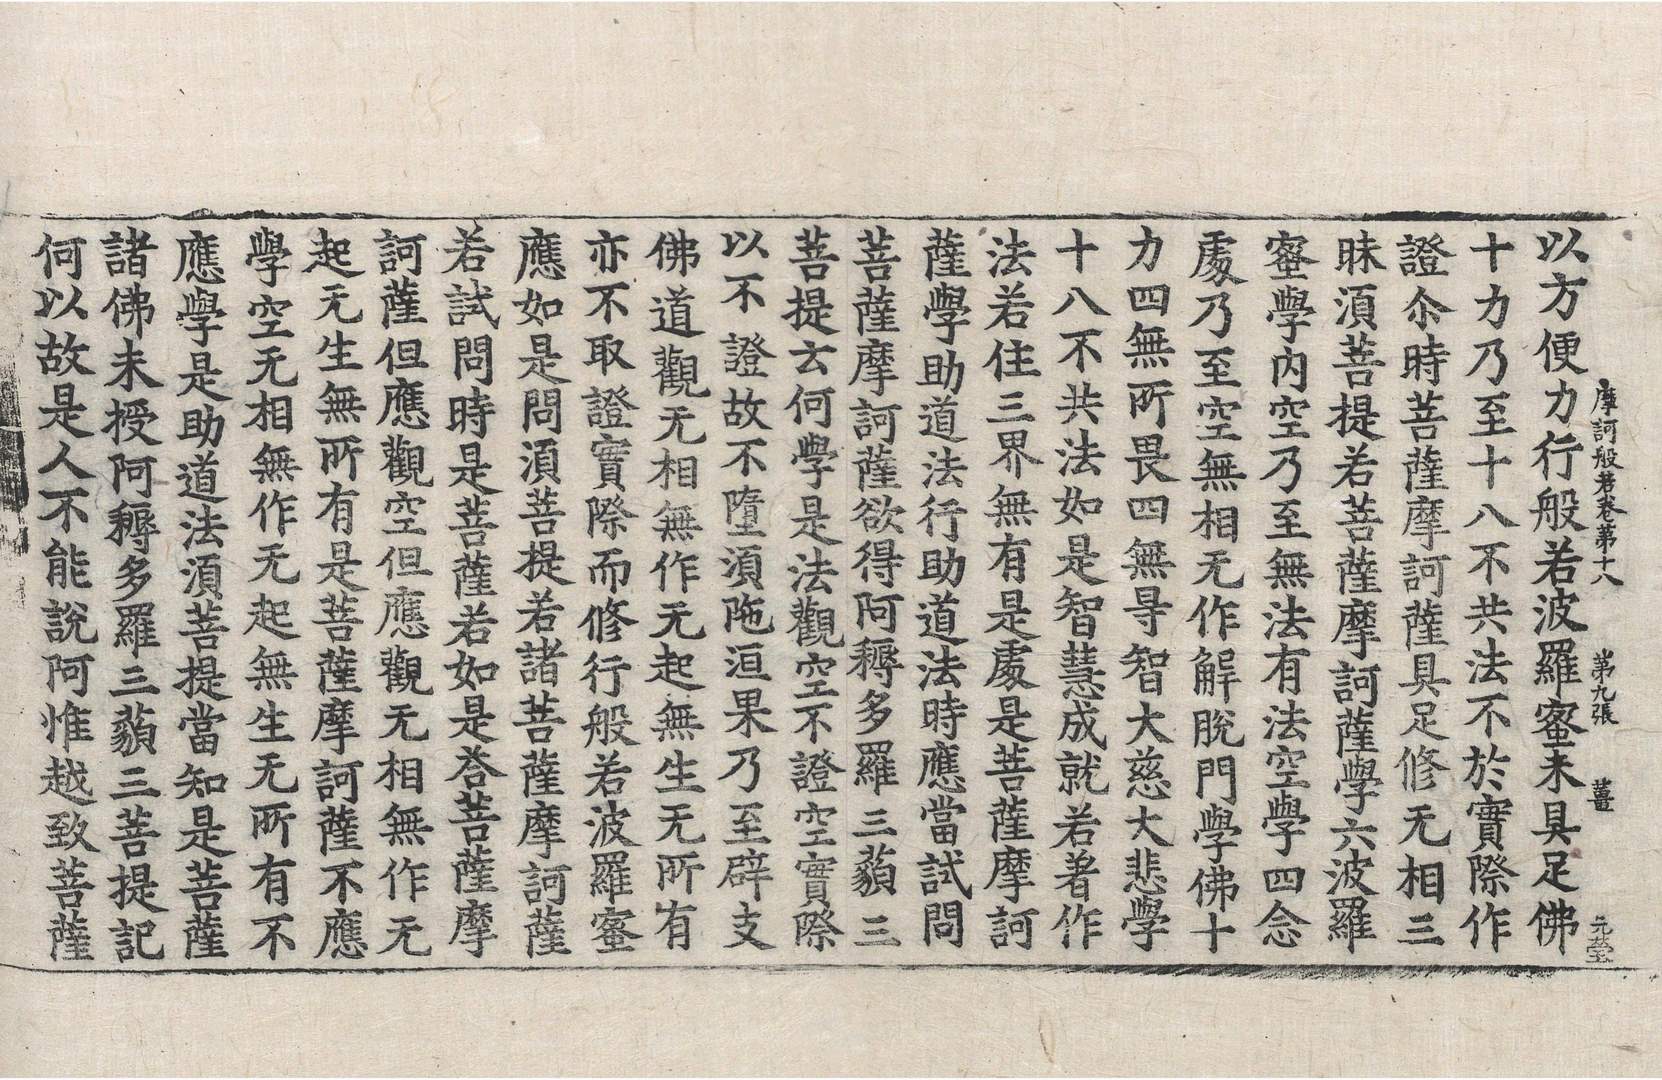 摩訶般若卷第十八　第九張　薑　元瑩
以方便力行般若波羅蜜未具足佛
十力乃至十八不共法不於實際作
證尒時菩薩摩訶薩具足修无相三
昧須菩提若菩薩摩訶薩學六波羅
蜜學內空乃至無法有法空學四念
處乃至空無相无作解脫門學佛十
力四無所畏四無㝵智大慈大悲學
十八不共法如是智慧成就若著作
法若住三界無有是處是菩薩摩訶
薩學助道法行助道法時應當試問
菩薩摩訶薩欲得阿耨多羅三藐三
菩提云何學是法觀空不證空實際
以不證故不墮須陁洹果乃至辟支
佛道觀无相無作无起無生无所有
亦不取證實際而修行般若波羅蜜
應如是問須菩提若諸菩薩摩訶薩
若試問時是菩薩若如是荅菩薩摩
訶薩但應觀空但應觀无相無作无
起无生無所有是菩薩摩訶薩不應
學空无相無作无起無生无所有不
應學是助道法須菩提當知是菩薩
諸佛未授阿耨多羅三藐三菩提記
何以故是人不能說阿惟越致菩薩